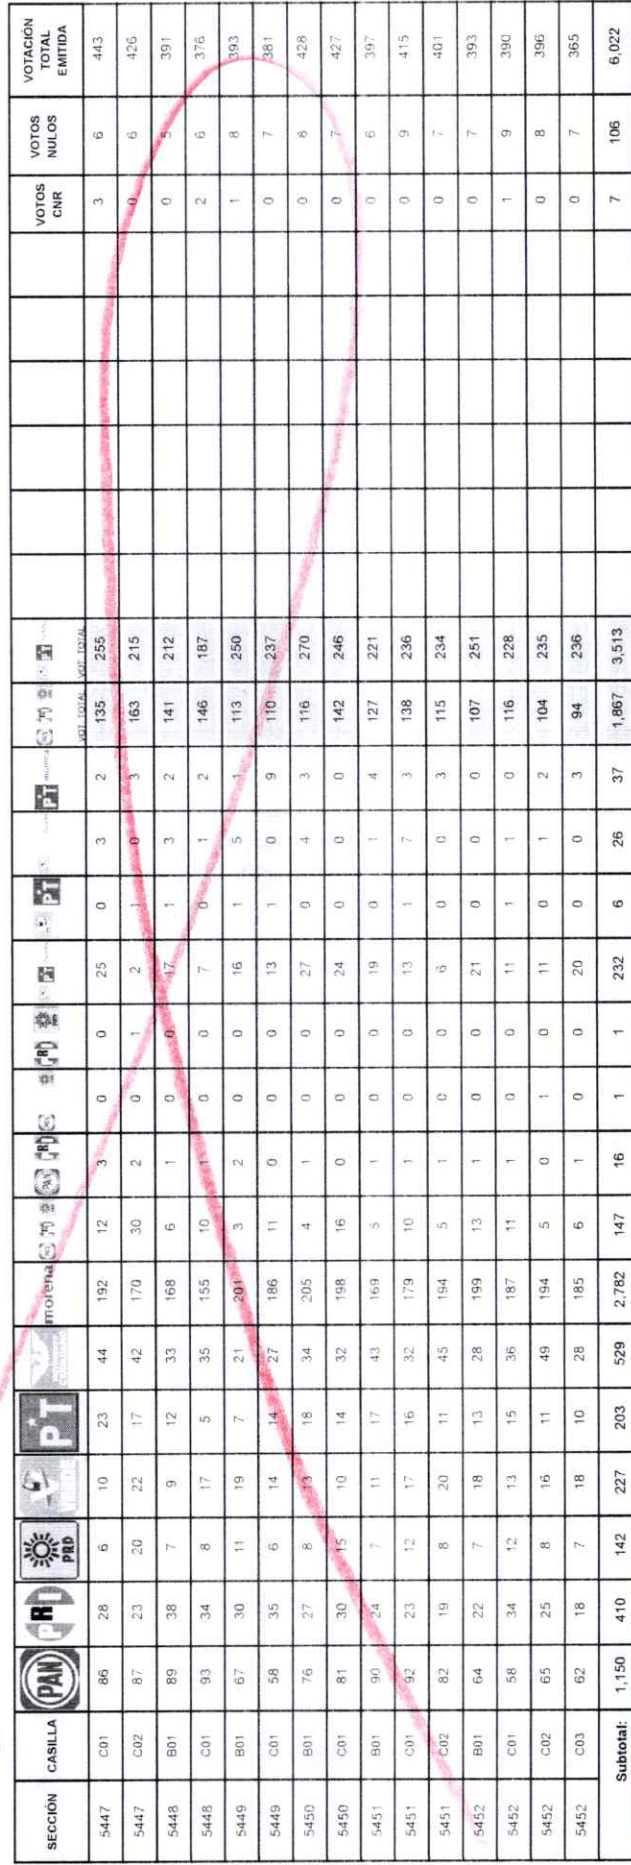 SECCIÓN CASILLA PAN PRI PRD VERDE PT morena VOTOS CNR VOTOS NULOS VOTACIÓN TOTAL EMITIDA
VOT TOTAL VOT TOTAL
5447 C01 86 28 6 10 23 44 192 12 3 0 0 25 0 3 2 135 255 3 6 443
5447 C02 87 23 20 22 17 42 170 30 2 0 1 2 1 0 3 163 215 0 6 426
5448 B01 89 38 7 9 12 33 168 6 1 0 0 17 1 3 2 141 212 0 5 391
5448 C01 93 34 8 17 5 35 155 10 1 0 0 7 0 1 2 146 187 2 6 376
5449 B01 67 30 11 19 7 21 201 3 2 0 0 16 1 5 1 113 250 1 8 393
5449 C01 58 35 6 14 14 27 186 11 0 0 0 13 1 0 9 110 237 0 7 381
5450 B01 76 27 8 13 18 34 205 4 1 0 0 27 0 4 3 116 270 0 8 428
5450 C01 81 30 15 10 14 32 198 16 0 0 0 24 0 0 0 142 246 0 7 427
5451 B01 90 24 7 11 17 43 169 5 1 0 0 19 0 1 4 127 221 0 6 397
5451 C01 92 23 12 17 16 32 179 10 1 0 0 13 1 7 3 138 236 0 9 415
5451 C02 82 19 8 20 11 45 194 5 1 0 0 6 0 0 3 115 234 0 7 401
5452 B01 64 22 7 18 13 28 199 13 1 0 0 21 0 0 0 107 251 0 7 393
5452 C01 58 34 12 13 15 36 187 11 1 0 0 11 1 1 0 116 228 1 9 390
5452 C02 65 25 8 16 11 49 194 5 0 1 0 11 0 1 2 104 235 0 8 396
5452 C03 62 18 7 18 10 28 185 6 1 0 0 20 0 0 3 94 236 0 7 365
Subtotal: 1,150 410 142 227 203 529 2,782 147 16 1 1 232 6 26 37 1,867 3,513 7 106 6,022